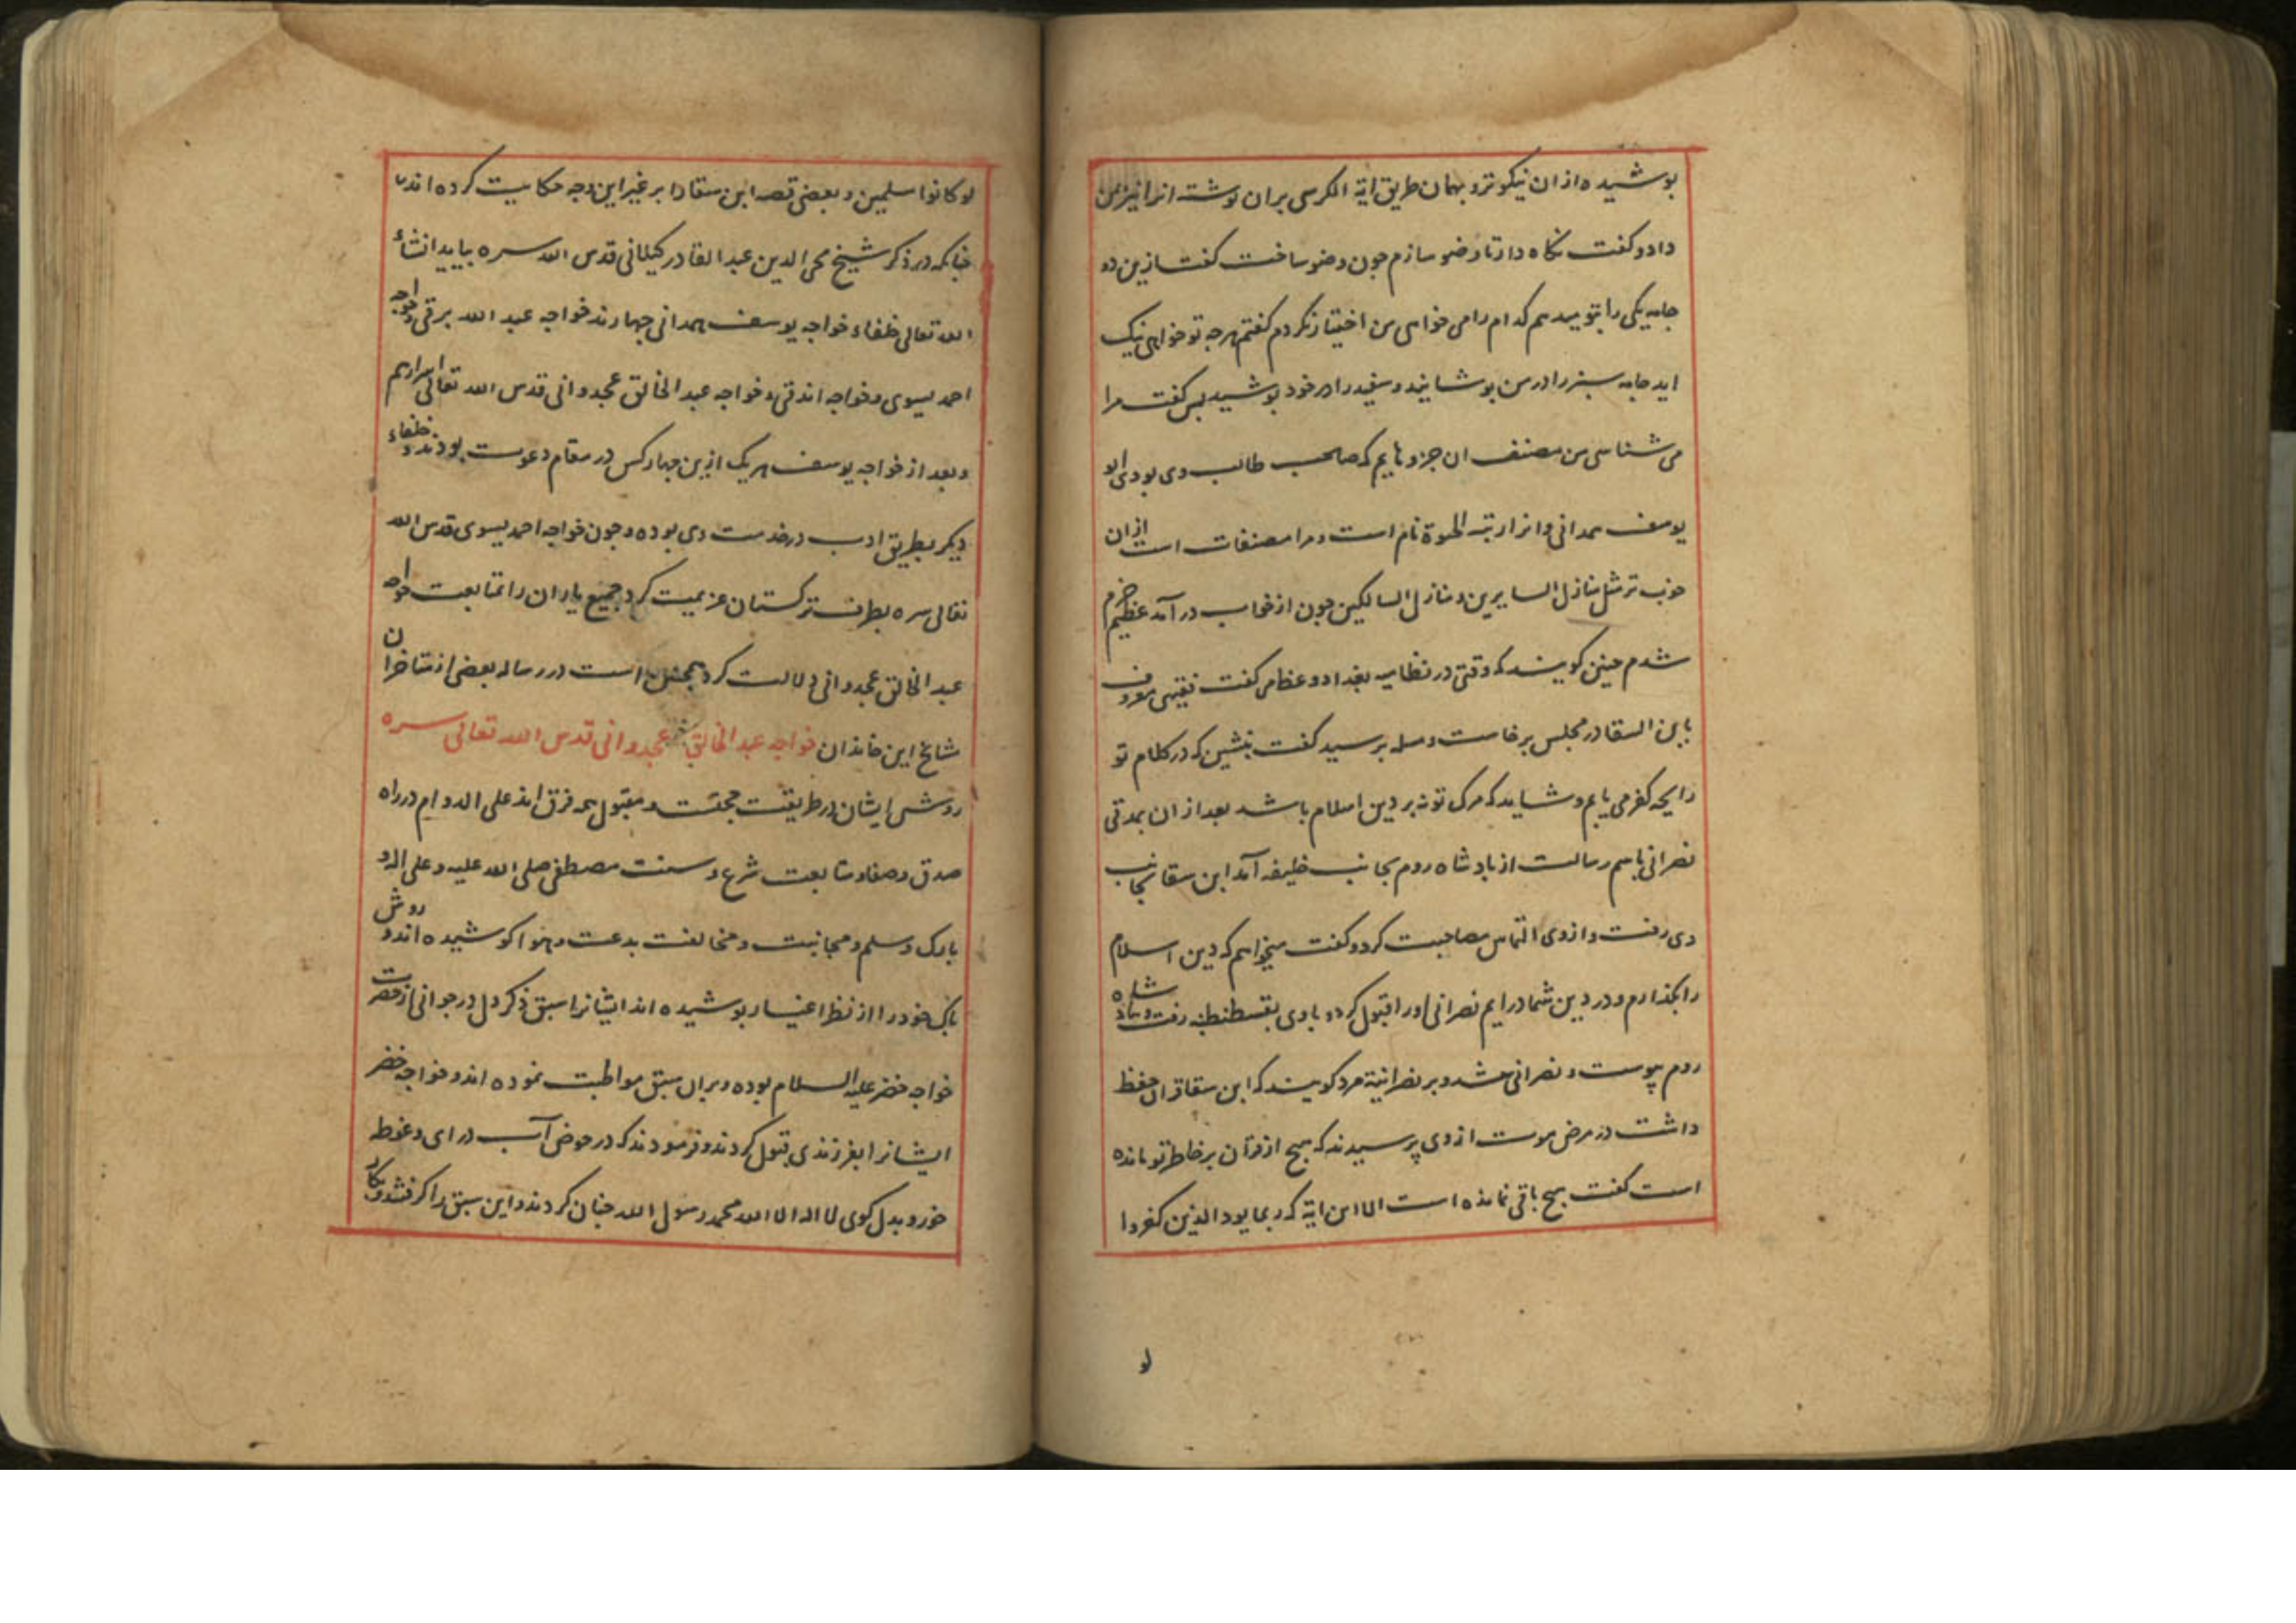 پوشیده از ان نیکوتر و بهمان طریق ایة الکرسی بران نوشته انرا نیز بمن
داد و کفت نکاه دار تا وضو سازم چون وضو ساخت کفت ازین دو
جامه یکی را بتو میدهم کدام را می خواهی من اختیار نکردم کفتم هرچه تو خواهی نیک
اید جامه سبز را در من پوشانید و سفید را در خود پوشید پس کفت مرا
می شناسی من مصنف ان جزوهایم که صاحب طالب وی بودی ابو
یوسف همدانی و انرا رتبة الحیوة نام است و مرا مصنفات است از ان
خوب تر مثل منازل السایرین و منازل السالکین چون از خواب در آمد عظیم خرم
شدم چنین کویند که وقتی در نظامیه بغداد وعظ می کفت فقیهی معروف
بابن السقا در مجلس برخاست و مسله پرسید کفت بنشین که در کلام تو
رایحه کفر می یابم و شاید که مرک تو نه بر دین اسلام باشد بعد از ان بمدتی
نصرانی باسم رسالت از پادشاه روم بجانب خلیفه آمد ابن سقا بجانب
وی رفت و از وی التماس مصاحبت کرد و کفت میخواهم که دین اسلام
را بکذارم و در دین شما درایم نصرانی اورا قبول کرد و با وی بقسطنطنیه رفت و بپادشاه
روم پیوست و نصرانی شد و بر نصرانیة مرد کویند که ابن سقا قران حفظ
داشت در مرض موت از وی پرسیدند که هیچ از قرآن بر خاطر تو مانده
است کفت هیچ باقی نمانده است الا این ایة که ربما یود الذین کفروا
لو
لو کانوا مسلمین و بعضی قصه ابن سقا را بر غیر این وجه حکایت کرده اند
چنانکه در ذکر شیخ محی الدین عبد القادر کیلانی قدس الله سره بیاید انشاء
الله تعالی خلفاء خواجه یوسف همدانی چهارند خواجه عبد الله برقی و خواجه
احمد یسوی و خواجه اندقی و خواجه عبد الخالق غجدوانی قدس الله تعالی اسرارهم
و بعد از خواجه یوسف هریک ازین چهار کس در مقام دعوت بودند و خلفاء
دیکر بطریق ادب در خدمت وی بوده و چون خواجه احمد یسوی قدس الله
تعالی سره بطرف ترکستان عزیمت کرد جمیع یاران را بمتابعت خواجه
عبد الخالق غجدوانی دلالت کرد همچنین است در رساله بعضی از متاخران
مشایخ این خاندان خواجه عبد الخالق غجدوانی قدس الله تعالی سره
روش ایشان در طریقت حجتست و مقبول همه فرق اند علی الدوام در راه
صدق و صفا و متابعت شرع و سنت مصطفی صلی الله علیه و علی اله و
بارک و سلم و مجانبت و مخالفت بدعت و هوا کوشیده اند و روش
پاک خود را از نظر اغیار پوشیده اند ایشانرا سبق ذکر دل در جوانی از حضرت
خواجه خضر علیه السلام بوده و بران سبق مواظبت نموده اند و خواجه خضر
ایشانرا بفرزندی قبول کردند و فرمودند که در حوض آب درای و غوطه
خور و بدل کوی لا اله الا الله محمد رسول الله چنان کردند و این سبق را کرفتند و بکار